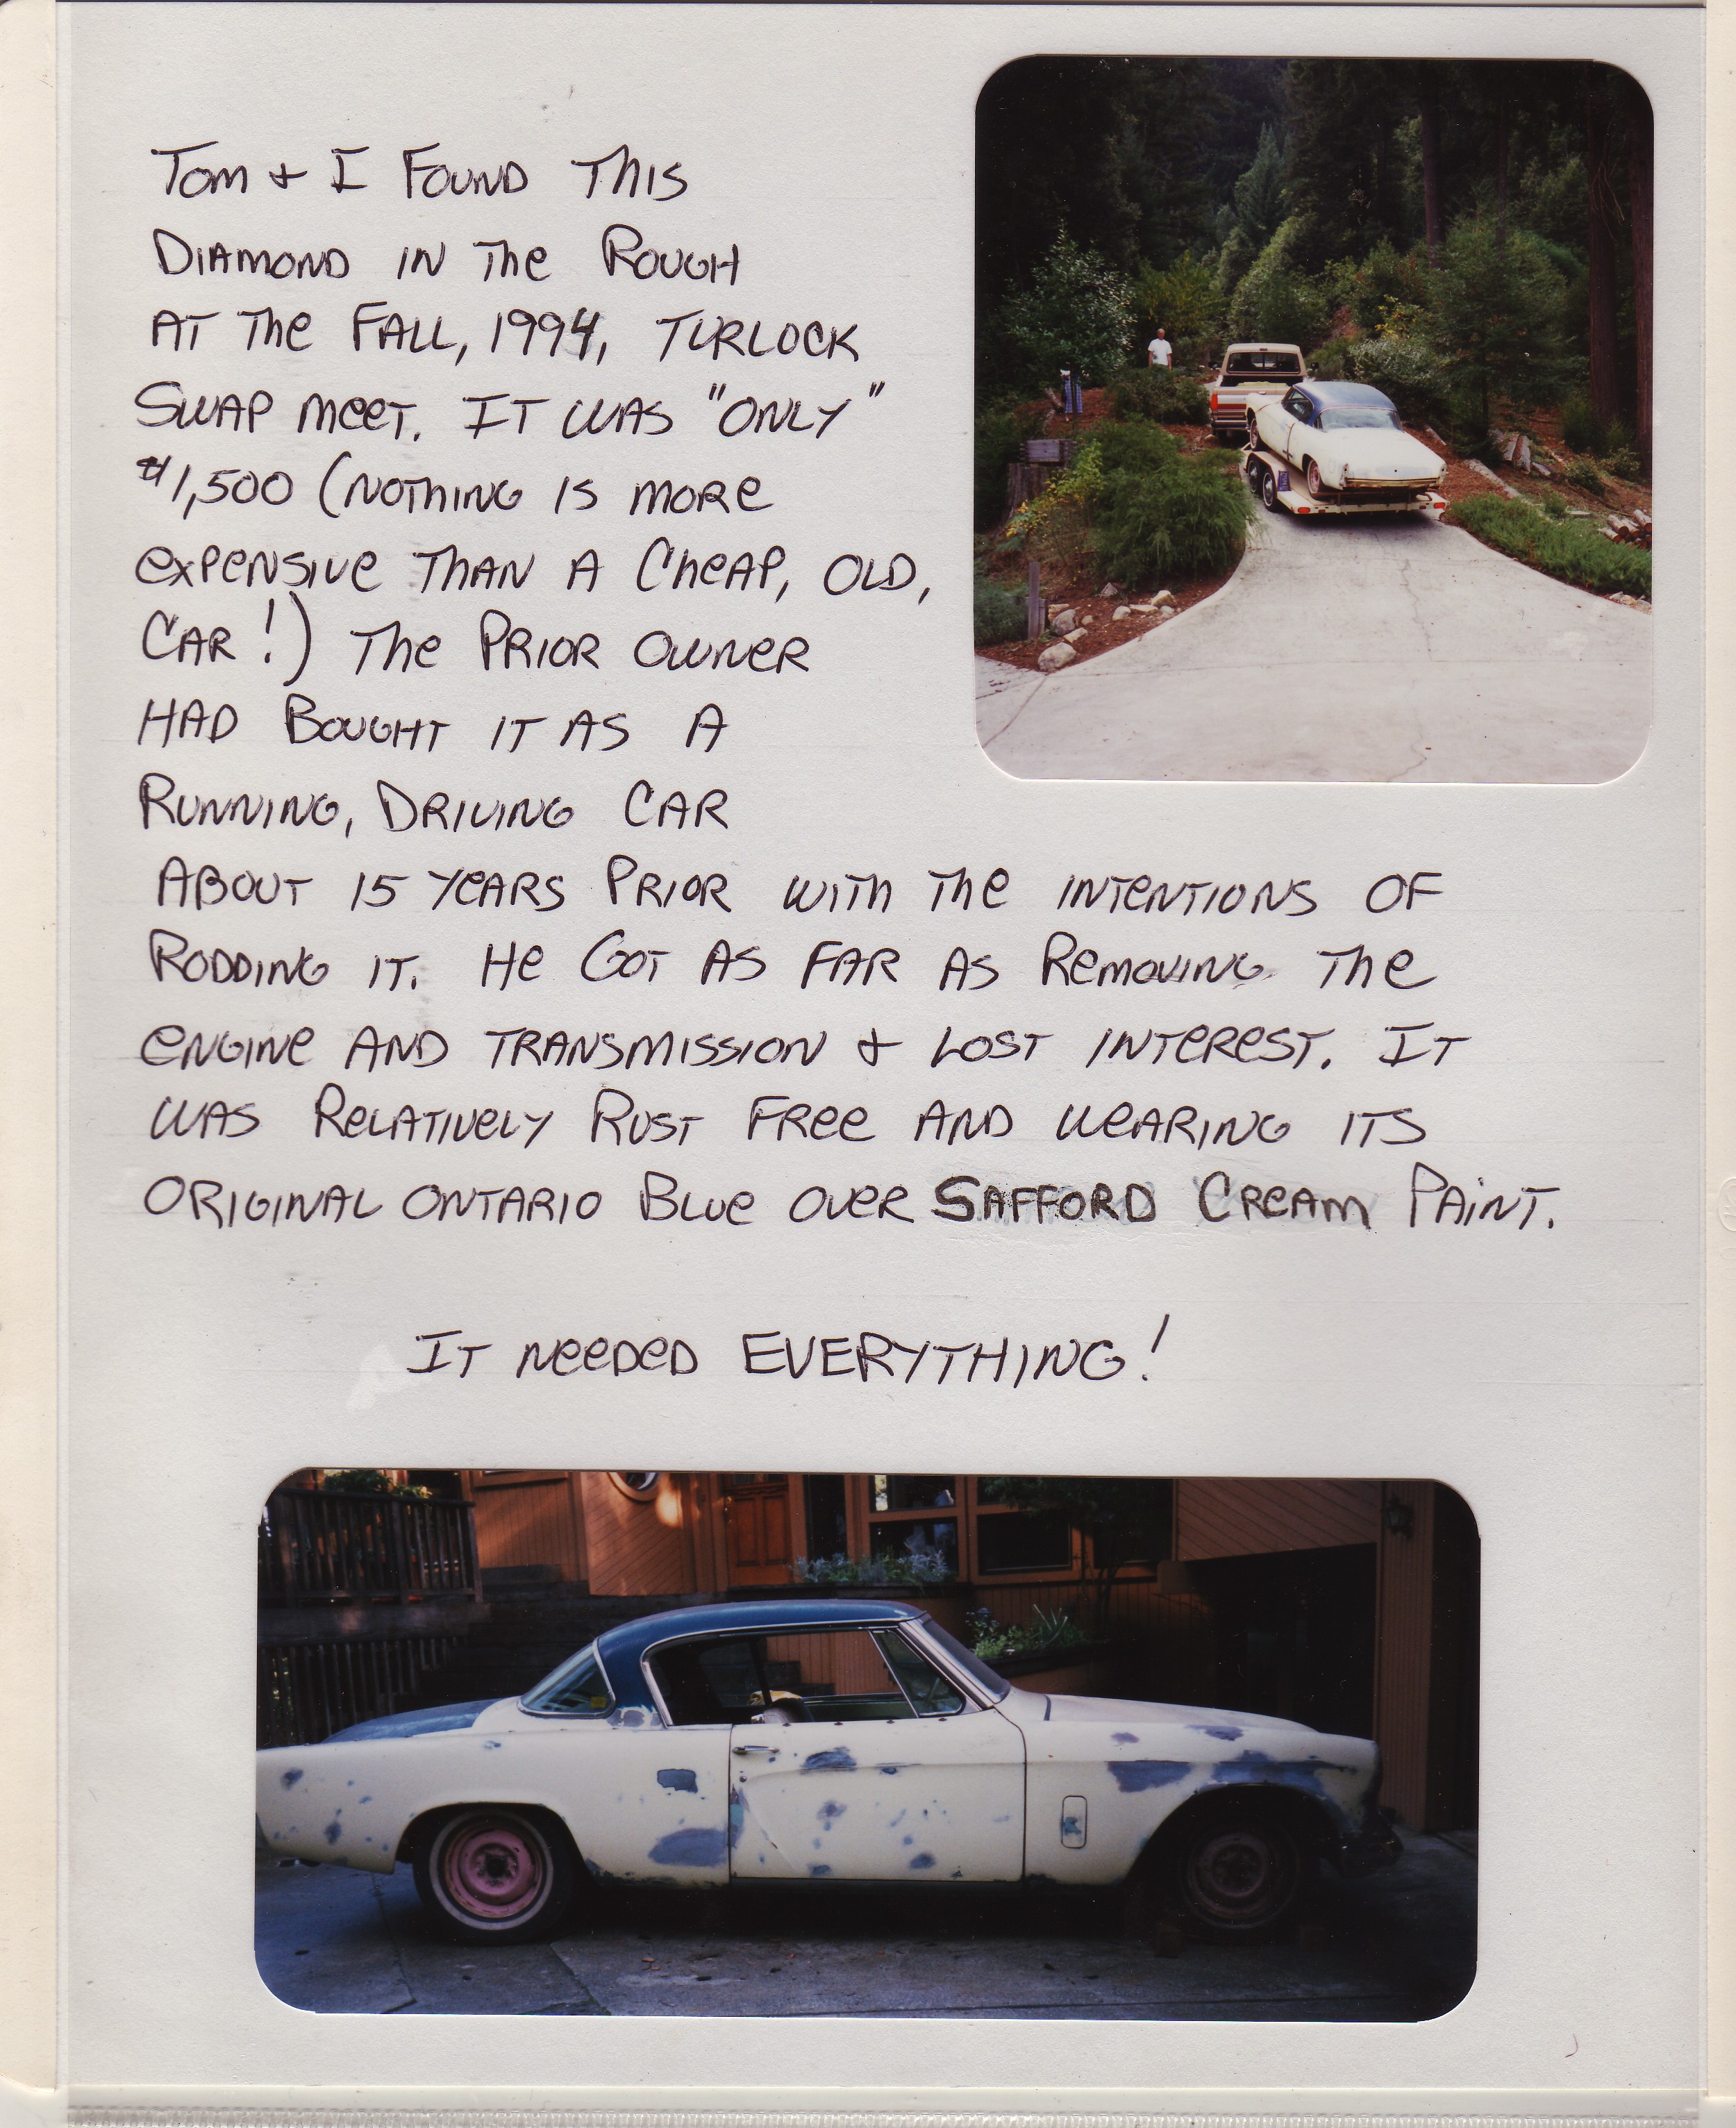 Tom & I Found This
Diamond in The Rough
At The Fall, 1994, Turlock
Swap Meet. It was "Only"
$1,500 (Nothing is more
expensive than a cheap, old,
car!) The Prior owner
had bought it as a
running, driving car
about 15 years prior with the intentions of
rodding it. He got as far as removing the
engine and transmission & lost interest. It
was relatively rust free and wearing its
original Ontario Blue over Safford Cream paint.
It needed EVERYTHING!